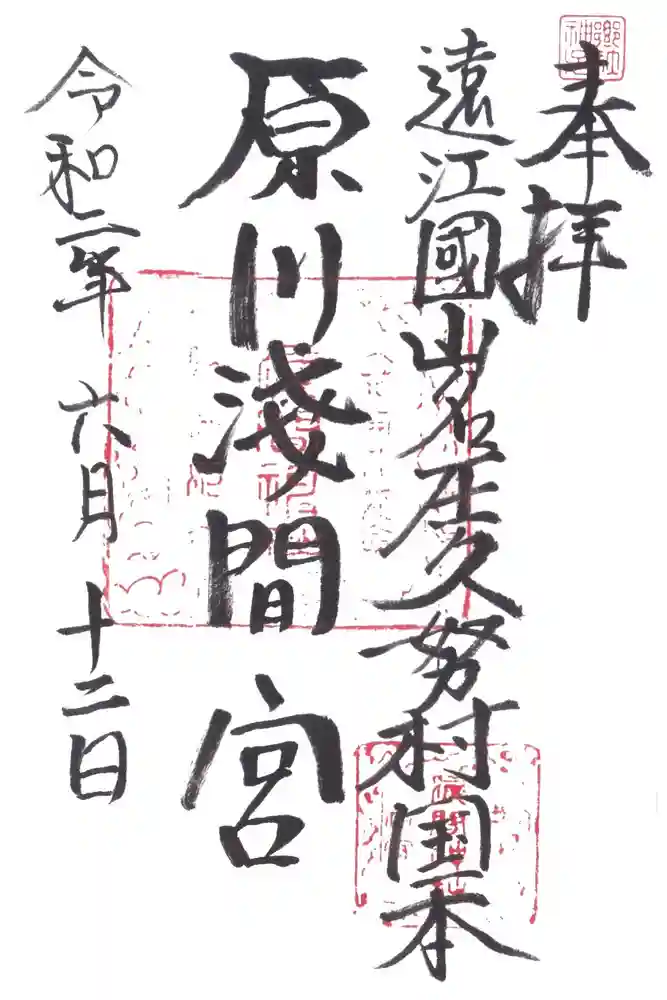 奉拝
遠江國山名庄久努村国本
原川淺間宮
令和二年 六月 十二日